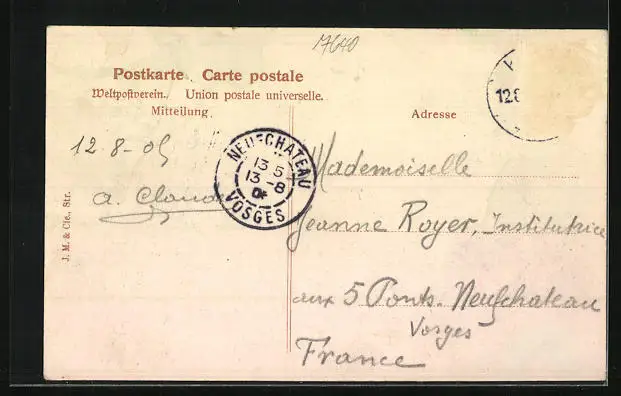 17640
Postkarte. Carte postale
Weltpostverein. Union postale universelle.
Mitteilung.
Adresse
12.8
12-8-05
a. Claude
NEUFCHATEAU
13 5
13 -8
VOSGES
Mademoiselle
Jeanne Royer, Institutrice
aux 5 Ponts. Neufchateau
Vosges
France
J. M. & Cie., Str.